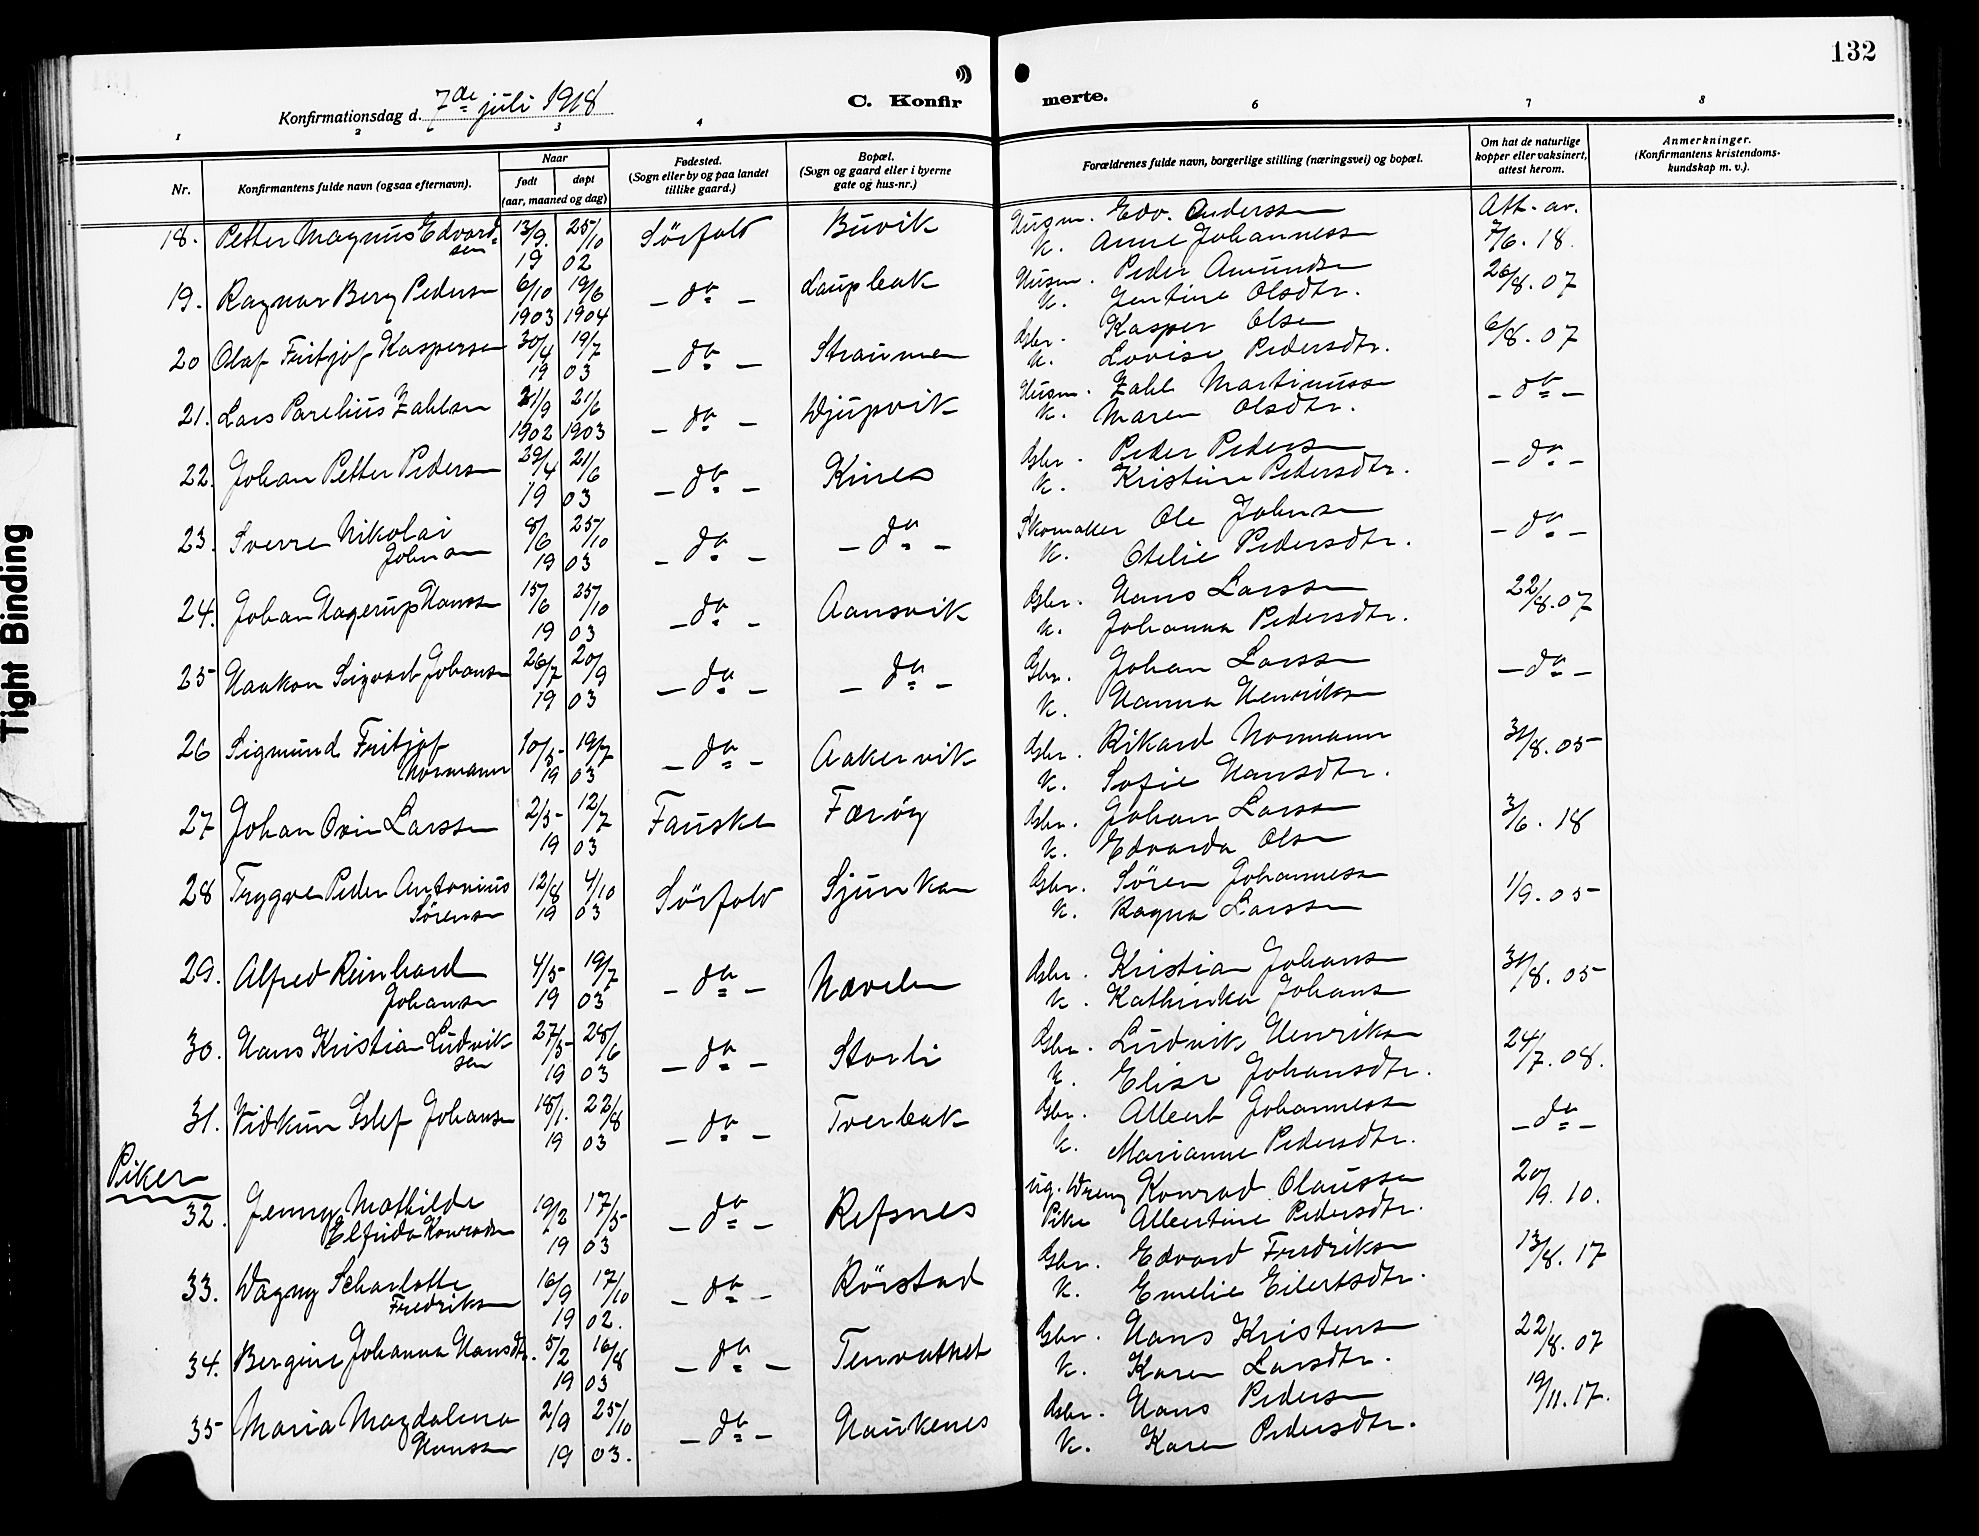 132
Konfirmationsdag d. 7de juli 1918
C. Konfirmerte.
1 2 3 4 6 7 8
Nr. Konfirmantens fulde navn (ogsaa efternavn). Naar født døpt (aar, maaned og dag) Fødested. (Sogn eller by og paa landet tillike gaard.) Bopæl. (Sogn og gaard eller i byerne gate og hus-nr.) Forældrenes fulde navn, borgerlige stilling (næringsvei) og bopæl. Om hat de naturlige kopper eller vaksinert, attest herom. Anmerkninger. (Konfirmantens kristendomskundskap m. v.).
18. Petter Magnus Edvardsen 13/9 1902 25/10 Sörfold Buvik Husm. Edv. Anderssen Att. av.
K. Anne Johannessen 7/6. 18.
19. Ragnar Berg Pedersen 6/10 1903 19/6 1904 - do - Laupbak Husm. Peder Amundsen 26/8. 07
K. Jentine Olsdtr.
20 Olaf Fritjof Kaspersen 30/4 19/7 1903 - do - Straumen Gbr. Kasper Olsen 6/8. 07
K. Lovise Pedersdtr.
21. Lars Parelius Zahlsen 21/9 1902 21/6 1903 - do - Djupvik Husm. Zahl Martinussen - do -
K. Maren Olsdtr.
22. Johan Petter Pedersen 29/4 21/6 1903 - do - Kines Gbr. Peder Pedersen - do -
K. Kristine Pedersdtr.
23. Sverre Nikolai Johnsen 8/6 25/10 1903 - do - - do - Skomaker Ole Johnsen - do -
K. Otelie Pedersdtr.
24. Johan Hagerup Hanssen 15/6 25/10 1903 - do - Aansvik Gbr. Hans Larssen 22/8. 07
K. Johanna Pedersdtr.
25 Haakon Sigvard Johansen 26/7 20/9 1903 - do - - do - Gbr. Johan Larssen - do -
K. Hanna Henriksen
26 Sigmund Fritjof Normann 10/5 19/7 1903 - do - Aakervik Gbr. Rikard Normann 31/8. 05
K. Sofie Hansdtr.
27 Johan Ovin Larssen 2/5 12/7 1903 Fauske Færöy Gbr. Johan Larssen 3/6. 18
K. Edvarda Olsen
28 Trygve Peder Antonius Sörensen 12/8 4/10 1903 Sörfold Sjunkan Gbr. Sören Johannessen 1/9. 05
K. Ragna Larssen
29. Alfred Reinhard Johansen 4/5 19/7 1903 - do - Nævelen Gbr. Kristian Johansen 31/8. 05
K. Kathinka Johansen
30. Hans Kristian Ludviksen 27/5 28/6 1903 - do - Storli Gbr. Ludvik Henriksen 24/7. 08.
K. Elise Johansdtr.
31. Vidkun Eslef Johansen 18/1. 22/8 1903 - do - Tverbak Gbr. Albert Johannessen - do -
K. Marianne Pedersdtr.
Piker
32. Jenny Mathilde Elfrida Konradsen 19/2 17/5 1903 - do - Refsnes Ug. Dreng Konrad Claussen 20/9. 10.
Pike Albertine Pedersdtr.
33. Dagny Scharlotte Fredriksen 16/9 17/10 1902. - do - Rörstad Gbr. Edvard Fredriksen 13/8. 17
K. Emelie Eilertsdtr.
34. Bergine Johanna Hansdtr. 5/2 16/8 1903 - do - Tenvathet Gbr. Hans Kristensen 22/8. 07
K. Karen Larsdtr.
35 Maria Magdalena Hanssen 2/9 25/10 1903. - do - Haukenes Gbr. Hans Pedersen 19/11. 17.
K. Karen Pedersdtr.
Tight Binding